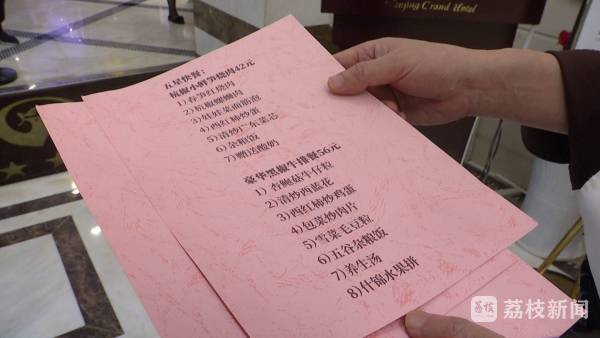 Nanjing Grand Hotel
五星快餐：
杭椒小鲜笋烧肉42元
1）春笋红烧肉
2）杭椒螺蛳肉
3）娃娃菜面筋泡
4）西红柿炒蛋
5）清炒广东菜芯
6）杂粮饭
7）赠送酸奶
豪华黑椒牛排餐56元
1）杏鲍菇牛仔粒
2）清炒西蓝花
3）西红柿炒鸡蛋
4）包菜炒肉片
5）雪菜毛豆粒
6）五谷杂粮饭
7）养生汤
8）什锦水果拼
荔枝
荔枝新闻